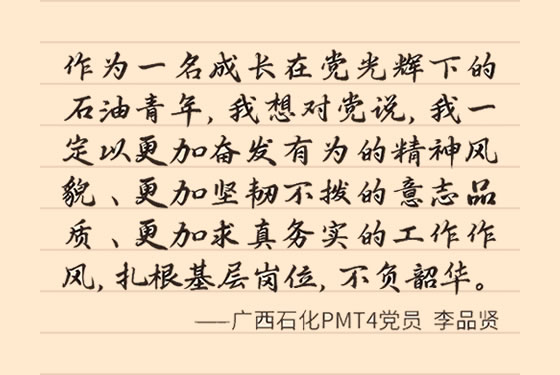 作为一名成长在党光辉下的
石油青年,我想对党说,我一
定以更加奋发有为的精神风
貌、更加坚韧不拨的意志品
质、更加求真务实的工作作
风,扎根基层岗位,不负韶华。
——广西石化PMT4党员 李品贤